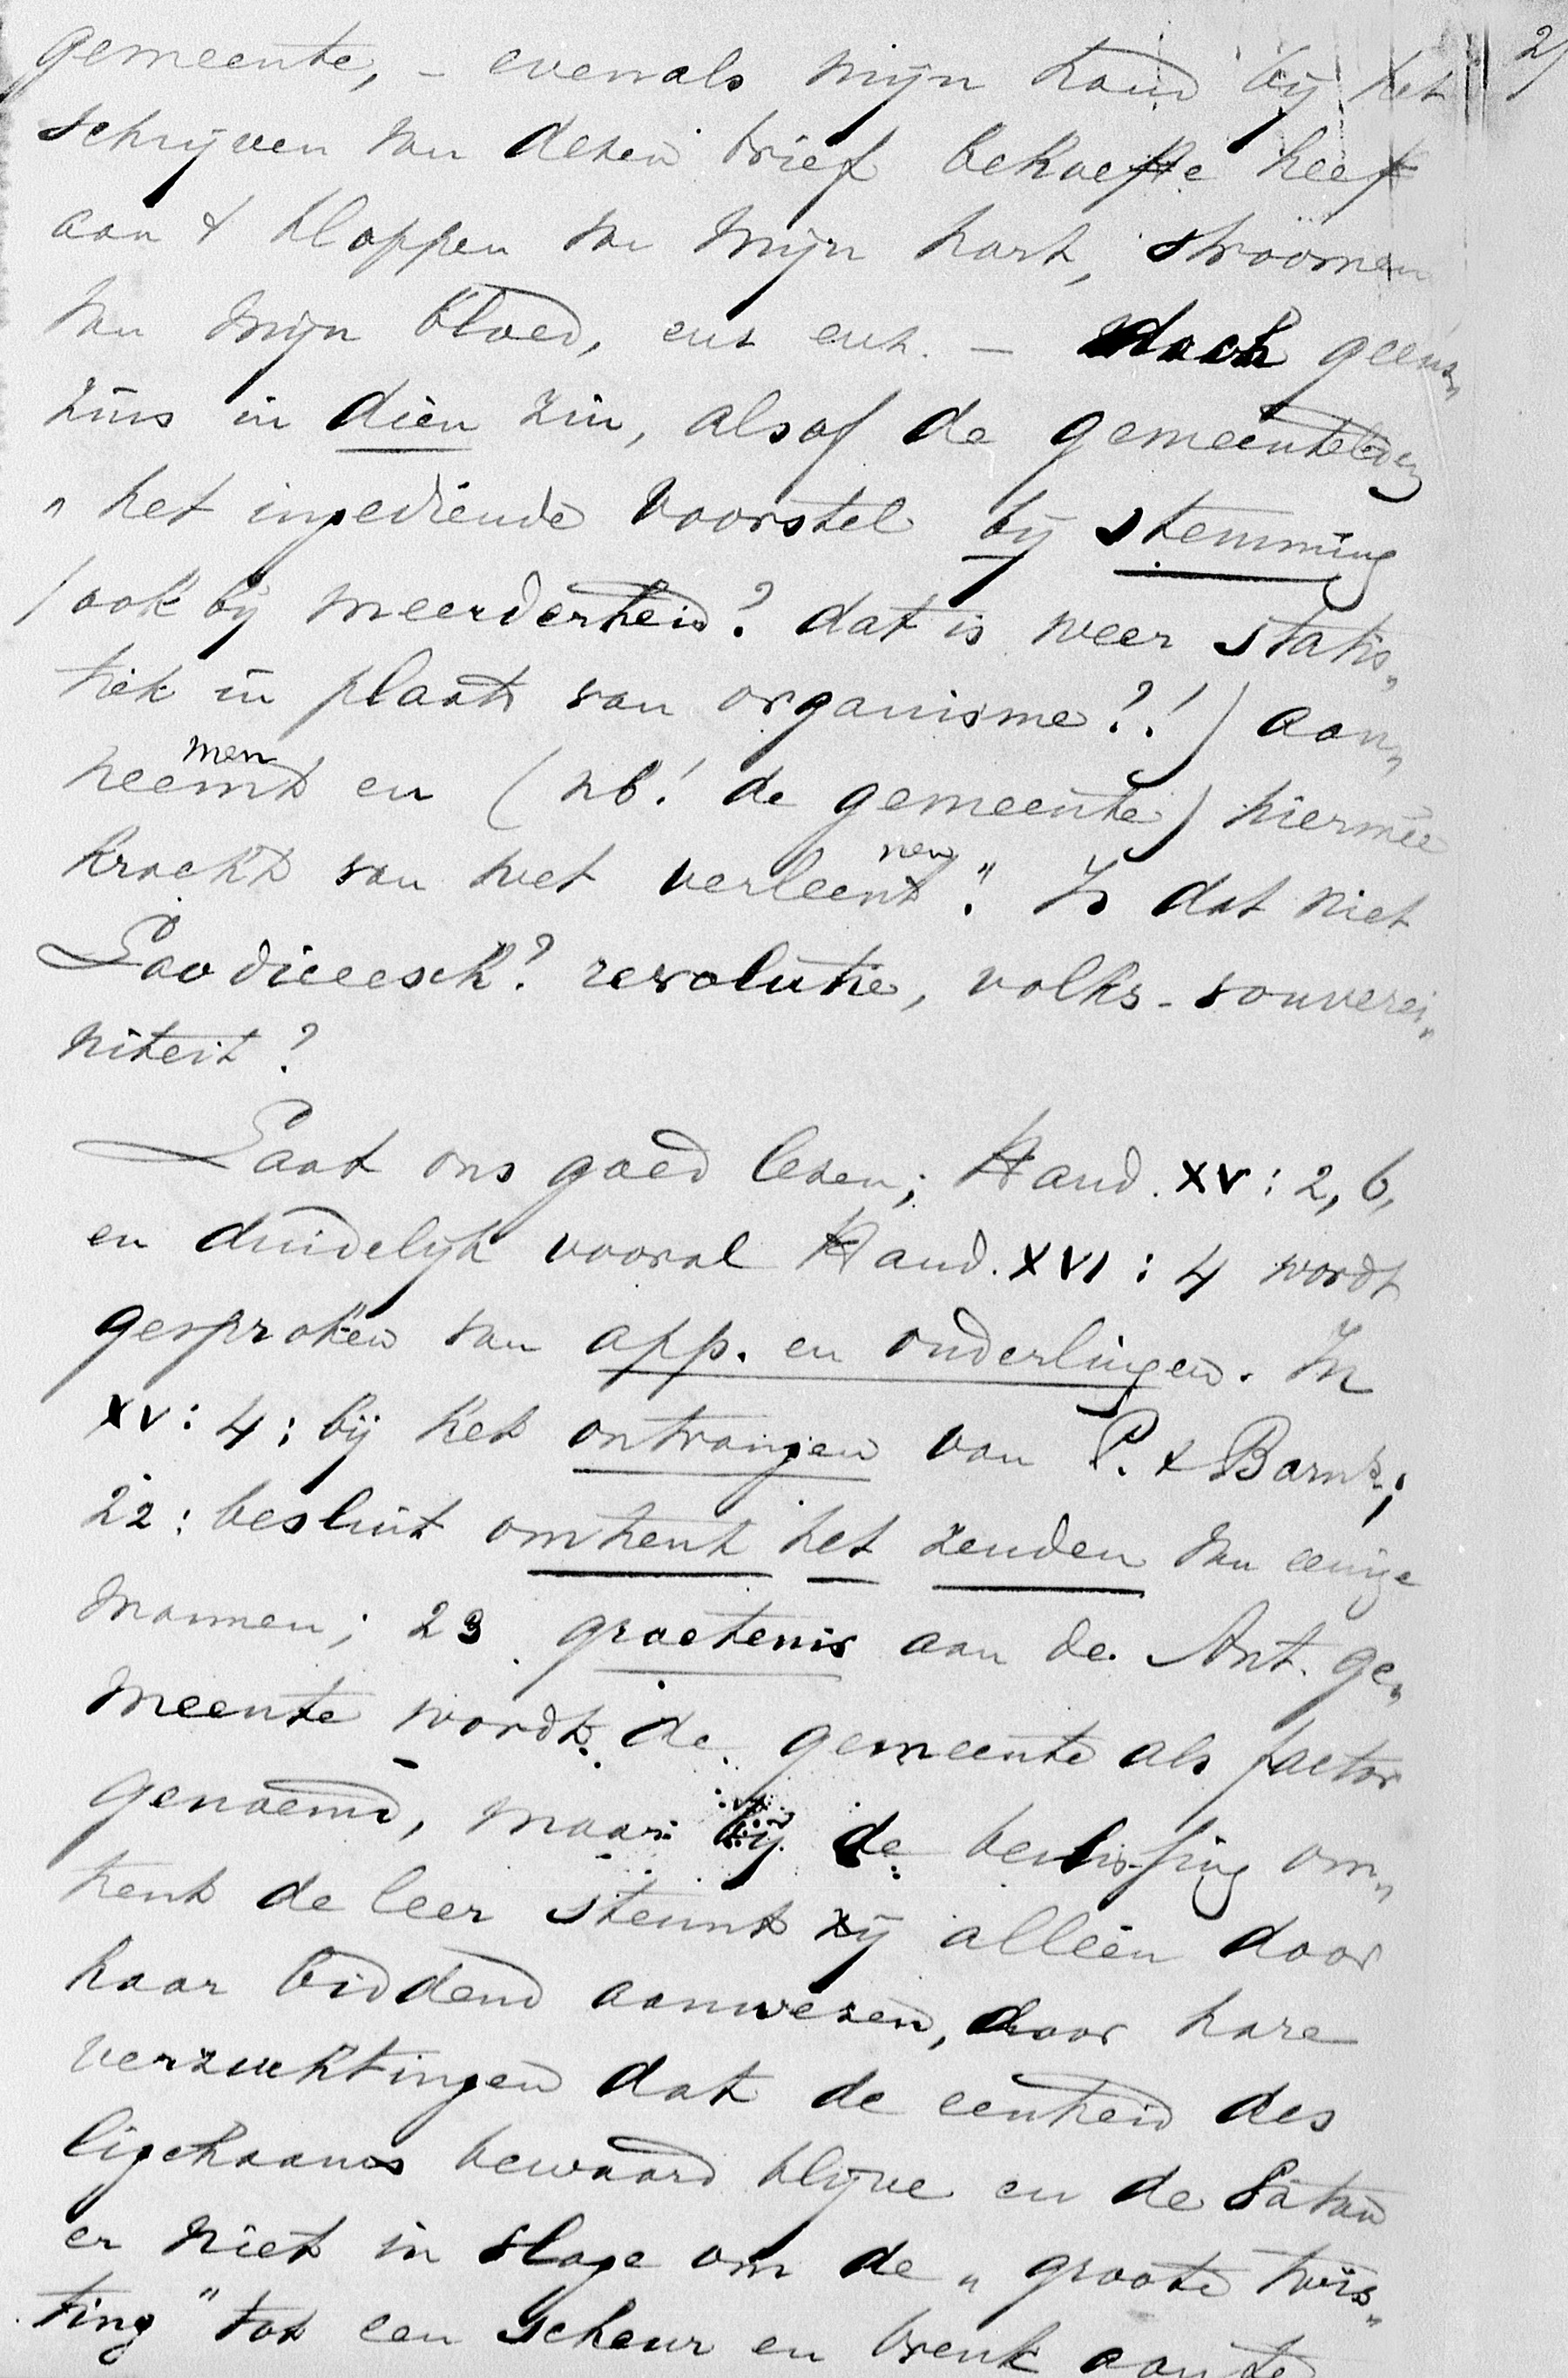 2/
gemeente, – evenals mijn hand bij het
schrijven van dezen brief behoefte heeft
aan 't kloppen van mijn hart, stroomen
van mijn bloed, enz enz. – doch geens„
zins in dien zin, alsof de gemeenteleden
„ het ingediende voorstel bij stemming
(ook bij meerderheid? dat is weer statis„
tiek in plaats van organisme?!) aan„
men
neemt en (nb! de gemeente) hiermêe
nen
kracht van wet verleent". Is dat niet
Laodiceesch? revolutie, volks-souverei„
niteit?
Laat ons goed lezen; Hand. XV: 2, 6,
en duidelijk vooral Hand. XVI: 4 wordt
gesproken van app. en ouderlingen. In
XV: 4: bij het ontvangen van P. & Barn.;
22: besluit omtrent het zenden van eenige
mannen; 23 groetenis aan de Ant. ge„
meente wordt de gemeente als factor
genoemd, maar bij de beslissing om„
trent de leer steunt zij alleen door
haar biddend aanwezen, door hare
verzuchtingen dat de eenheid des
ligchaams bewaard blijve en de Satan
er niet in slage om de „ groote twis„
ting" tot een scheur en breuk aan te